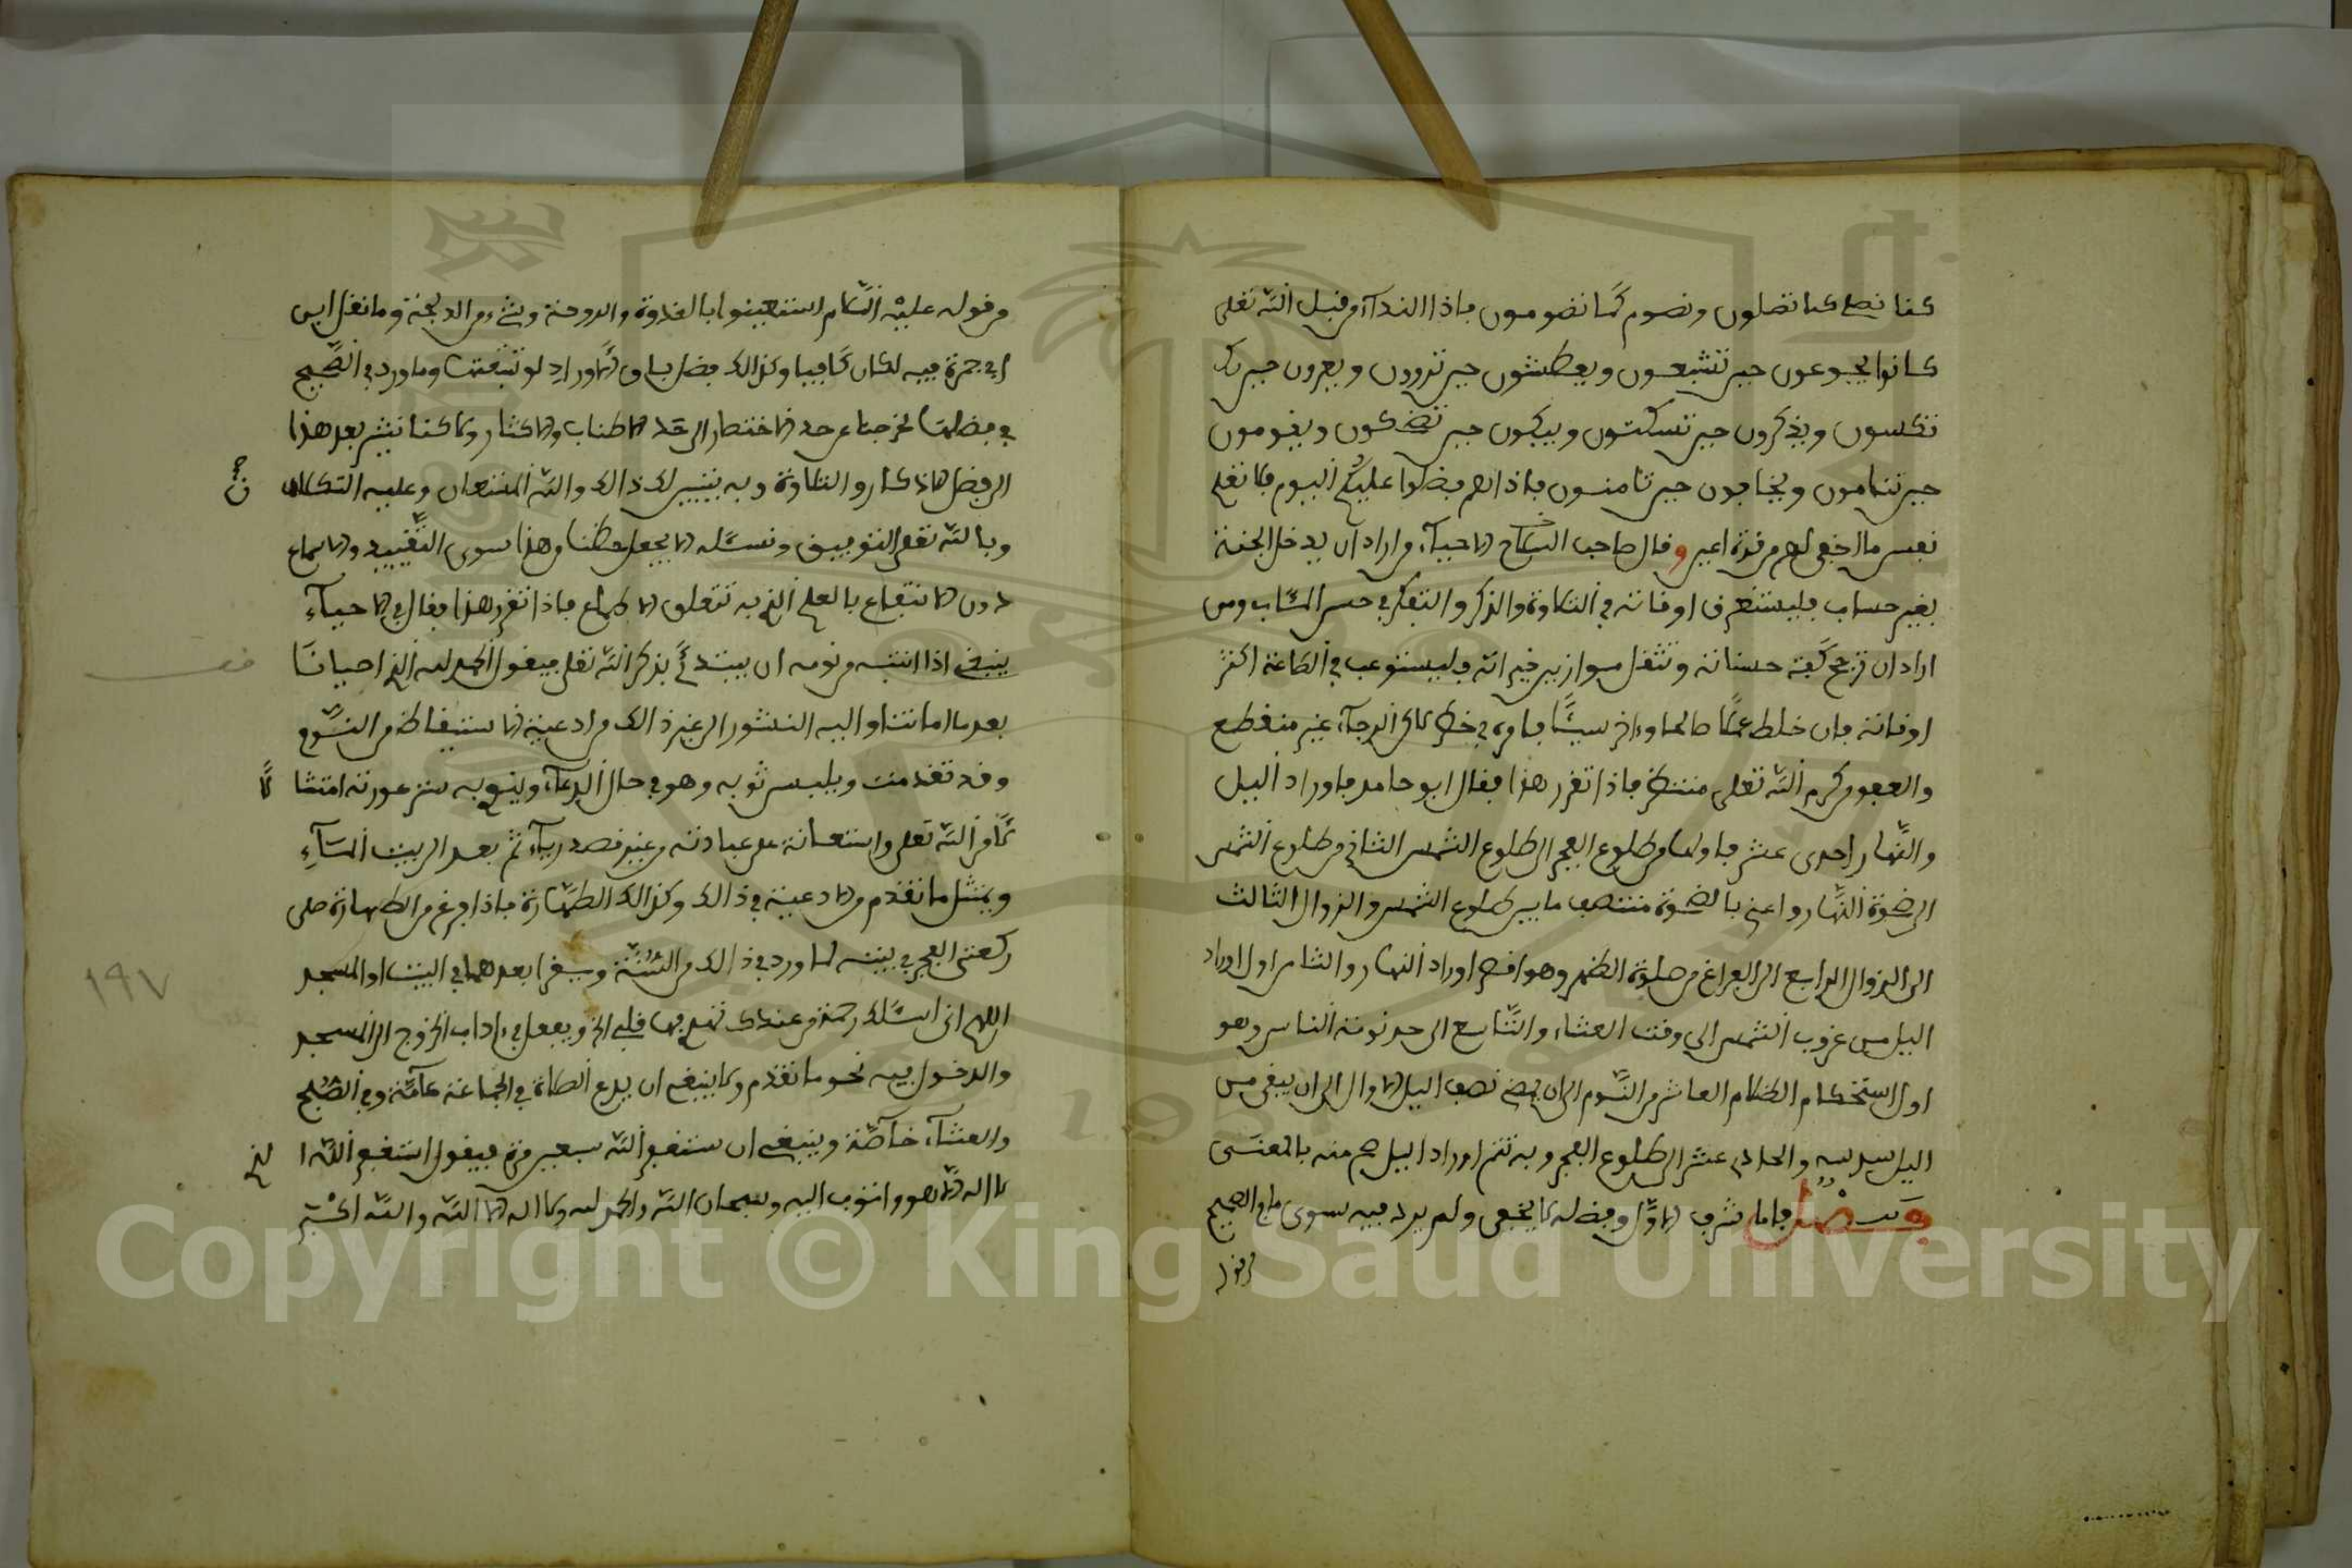 كنا نصلي كما تصلون ونصوم كما تصومون فإذا النداء من قبل الله تعلى
كانوا يجوعون حين تشبعون ويعطشون حين تروون ويعرون حين
تكسون ويذكرون حين تسكتون ويبكون حين تضحكون ويقومون
حين تنامون ويخافون حين تامنون فبذا لهم فضلوا عليكم اليوم فلا تعلم
نفس ما اخفي لهم من قرة اعين وقال صاحب الاحياء من اراد ان يدخل الجنة
بغير حساب فليستغرق اوقاته في التلاوة والذكر والتفكر في حسن المئاب ومن
اراد ان ترجح كفة حسناته وتثقل موازين خيراته فليستوعب في الطاعة اكثر
اوقاته فإن خلط عملا صالحا وءاخر سيئا فامره في خطر لاكن الرجاء غير منقطع
والعفو من كرم الله تعلى منتظر فإذا تقرر هذا فقال ابو حامد فاوراد اليل
والنهار احدى عشر فاولها من طلوع الفجر الى طلوع الشمس الثاني من طلوع الشمس
الى ضحوة النهار واعني بالضحوة منتصف ما بين طلوع الشمس والزوال الثالث
الى الزوال الرابع الى الفراغ من صلوة الظهر وهو اقصر اوراد النهار والثامن اول اوراد
اليل من غروب الشمس الى وقت العشاء والتاسع الى حد نومة الناس وهو
اول استحكام الظلام العاشر من النوم الى ان يمضي نصف اليل الاول الى ان يبقى من
اليل سدسه والحادي عشر الى طلوع الفجر وبه تتم اوراد اليل منه بالمعنى
فصل فاما شرف الاول وفضله لا يخفى ولم يرد فيه سوى ما في الصحيح
من قوله
من قوله عليه السلام استعينوا بالغدوة والروحة وشيء من الدلجة وما نقل ابن
ابي جمرة فيه لكان كافيا وكذالك فضل باق الاوراد لو تتبعتها وما ورد في الصحيح
في فضلها لخرجنا عن حد الاختصار الى حد الاطناب والاكثار ولاكنا نشير بعد هذا
الى فضل الاذكار والتلاوة وبه يتيسر لك ذالك والله المستعان وعليه التكلان
وبالله تعلى التوفيق ونسئله الا يجعل حظنا من هذا سوى التقييد والاسماع
دون الانتفاع بالعلم الذي به تتعلق الاطماع فإذا تقرر هذا فقال في الاحياء
ينبغي اذا انتبه من نومه ان يبتدئ بذكر الله تعلى فيقول الحمد لله الذي احيانا
بعد ما اماتنا واليه النشور الى غير ذالك من ادعية الاستيقاظ من النوم
وقد تقدمت ويلبس ثوبه وهو في حال الدعاء وينوي به ستر عورته امتثالا
لامر الله تعلى واستعانة على عبادته من غير قصد رياء ثم يعد الى بيت الماء
ويمتثل ما تقدم من الادعية في ذالك وكذالك الطهارة فإذا فرغ من الطهارة صلى
ركعتي الفجر في بيته لما ورد في ذالك من السنة ويقرا بعدهما في البيت او المسجد
اللهم اني اسئلك رحمة من عندك تهدي بها قلبي الخ ويفعل في ءاداب الخروج الى المسجد
والدخول فيه نحو ما تقدم ولا ينبغي ان يدع الصلاة في الجماعة عامة وفي الصبح
والعشاء خاصة وينبغي ان يستغفر الله سبعين مرة فيقول استغفر الله الذي
لا اله الا هو واتوب اليه وسبحان الله والحمد لله ولا اله الا الله والله اكبر
١٩٧
Copyright © King Saud University